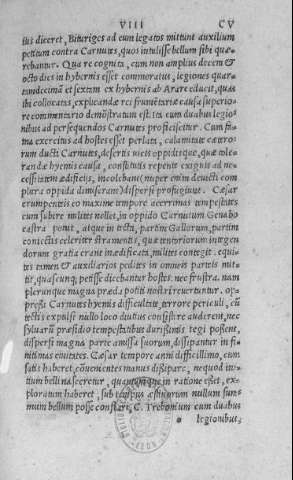 VIII CV
tiis diceret, Bituriges ad eum legatos mittunt auxilium
petitum contra Carnutes, quos intulisse bellum sibi quæ=
rebantur. Qua re cognita, cum non amplius decem &
octo dies in hybernis esset commoratus, legiones quar=
tamdecimã et sextam ex hybernis ab Arare educit, quas
ibi collocatas, explicandæ rei frumẽtariæ causa superio
re commentario demõstratum est. ita cum duabus legio
nibus ad persequendos Carnutes proficiscitur. Cum fa=
ma exercitus ad hostes esset perlata, calamitate cætero=
rum ducti Carnutes, desertis vicis oppidisque, quæ tole=
randæ hyemis causa, constitutis repente exiguis ad ne=
cessitatem ædificijs, incolebant (nuper enim deuicti com
plura oppida dimiserant) dispersi profugiunt. Cæsar
erumpenteis eo maxime tempore acerrimas tempestates
cum subire milites nollet, in oppido Carnutum Genabo
castra ponit, atque in tecta, partim Gallorum, partim
coniectis celeriter stramentis, quæ tentoriorum integen
dorum gratia erant inædificata, milites contegit. equi=
tes tamen & auxiliarios pedites in omneis parteis mit=
tit, quascunque petisse dicebantur hostes. nec frustra. nam
plerunque magna præda potiti nostri reuertuntur. op=
pressi Carnutes hyemis difficultate, terrore periculi, cũ
tectis expulsi nullo loco diutius consistere auderent, nec
syluarũ præsidio tempestatibus durißimis tegi possent,
dispersi magna parte amissa suorum, dissipantur in fi=
nitimas ciuitates. Cæsar tempore anni difficillimo, cum
satis haberet, cõuenientes manus dißipare, nequod ini=
tium belli nasceretur, quantumque in ratione esset, ex=
ploratum haberet, sub tempus æstiuorum nullum sum=
mum bellum posse conflari, C. Trebonium cum duabus
legionibus,